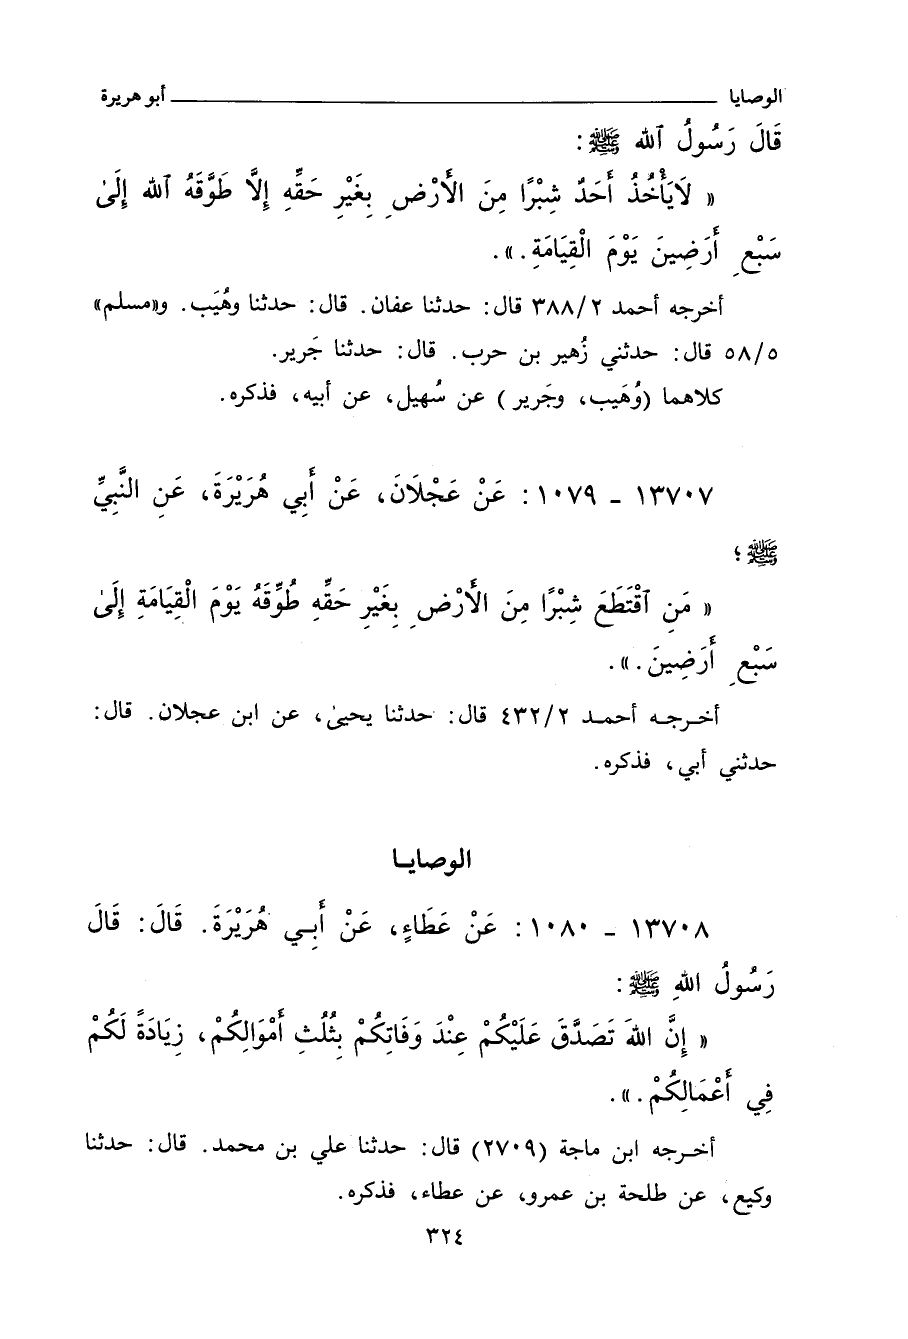 الوصايا ــــــــــــــــــــــــــــ أبو هريرة
قَالَ رَسُولُ ٱلله ﷺ:
« لَايَأْخُذُ أَحَدٌ شِبْرًا مِنَ الْأَرْضِ بِغَيْرِ حَقِّهِ إِلَّا طَوَّقَهُ ٱلله إِلَىٰ
سَبْعِ أَرَضِينَ يَوْمَ الْقِيَامَةِ.».
أخرجه أحمد ٣٨٨/٢ قال: حدثنا عفان. قال: حدثنا وهُيَب. و«مسلم»
٥٨/٥ قال: حدثني زُهير بن حرب. قال: حدثنا جَرير.
كلاهما (وُهَيب، وجَرير) عن سُهيل، عن أبيه، فذكره.
١٣٧٠٧ - ١٠٧٩: عَنْ عَجْلَانَ، عَنْ أَبِي هُرَيْرَةَ، عَنِ النَّبِيِّ
ﷺ؛
« مَنِ ٱقْتَطَعَ شِبْرًا مِنَ الْأَرْضِ بِغَيْرِ حَقِّهِ طُوِّقَهُ يَوْمَ الْقِيَامَةِ إِلَىٰ
سَبْعِ أَرَضِينَ.».
أخرجه أحمد ٤٣٢/٢ قال: حدثنا يحيىٰ، عن ابن عجلان. قال:
حدثني أبي، فذكره.
الوصايا
١٣٧٠٨ - ١٠٨٠: عَنْ عَطَاءٍ، عَنْ أَبِي هُرَيْرَةَ. قَالَ: قَالَ
رَسُولُ اللهِ ﷺ:
« إِنَّ اللهَ تَصَدَّقَ عَلَيْكُمْ عِنْدَ وَفَاتِكُمْ بِثُلُثِ أَمْوَالِكُمْ، زِيَادَةً لَكُمْ
فِي أَعْمَالِكُمْ.».
أخرجه ابن ماجة (٢٧٠٩) قال: حدثنا علي بن محمد. قال: حدثنا
وكيع، عن طلحة بن عمرو، عن عطاء، فذكره.
٣٢٤